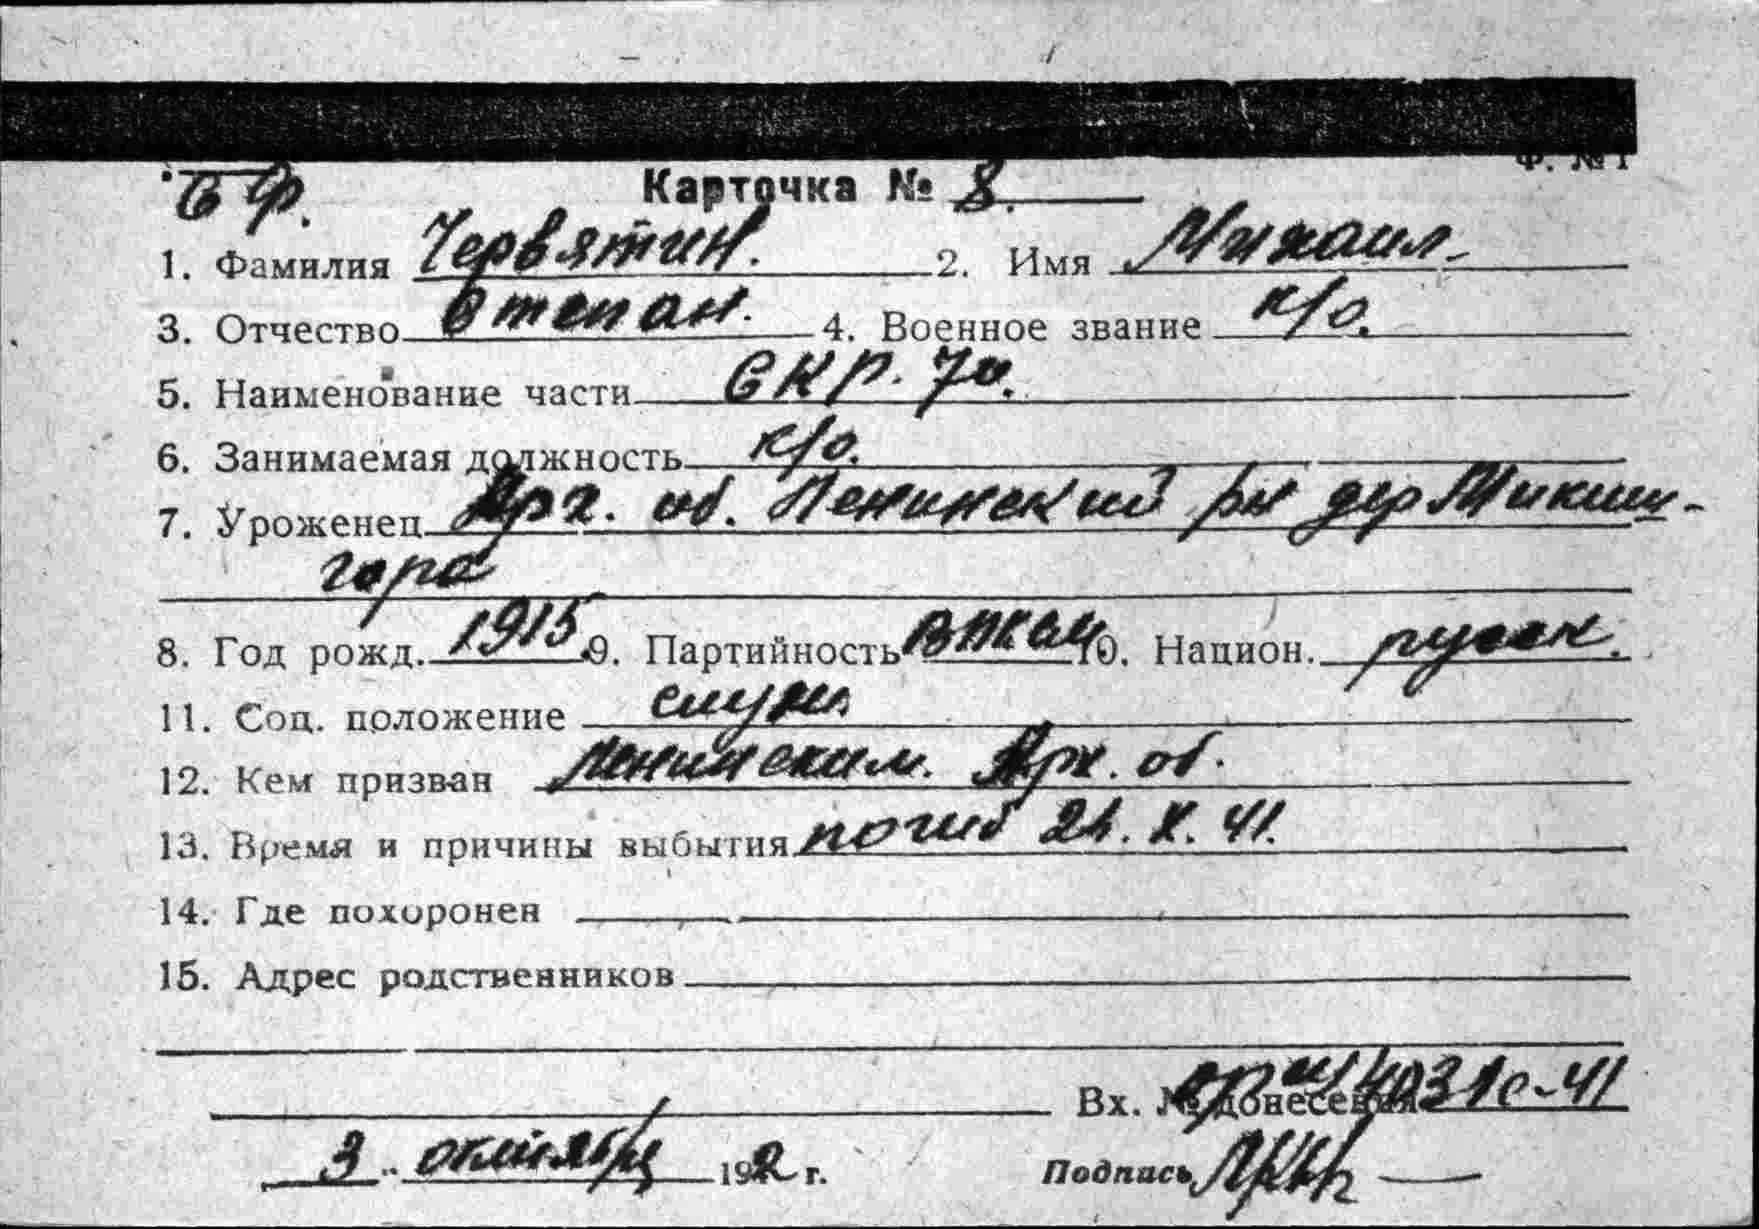 Ф. № 1
СФ.
Карточка № 8.
1. Фамилия Червятин. 2. Имя Михаил
3. Отчество Степан. 4. Военное звание к/о.
5. Наименование части СКР. 70.
6. Занимаемая должность к/о.
7. Уроженец Арх. об. Ленинский рн дер Микши-
гора
8. Год рожд. 1915 9. Партийность ВЛКСМ 10. Национ. русск.
11. Соц. положение служ.
12. Кем призван Ленинским. Арх. об.
13. Время и причины выбытия погиб 21. X. 41.
14. Где похоронен
15. Адрес родственников
Вх. № донесения 4031с-41
3 октября 192 г.
Подпись